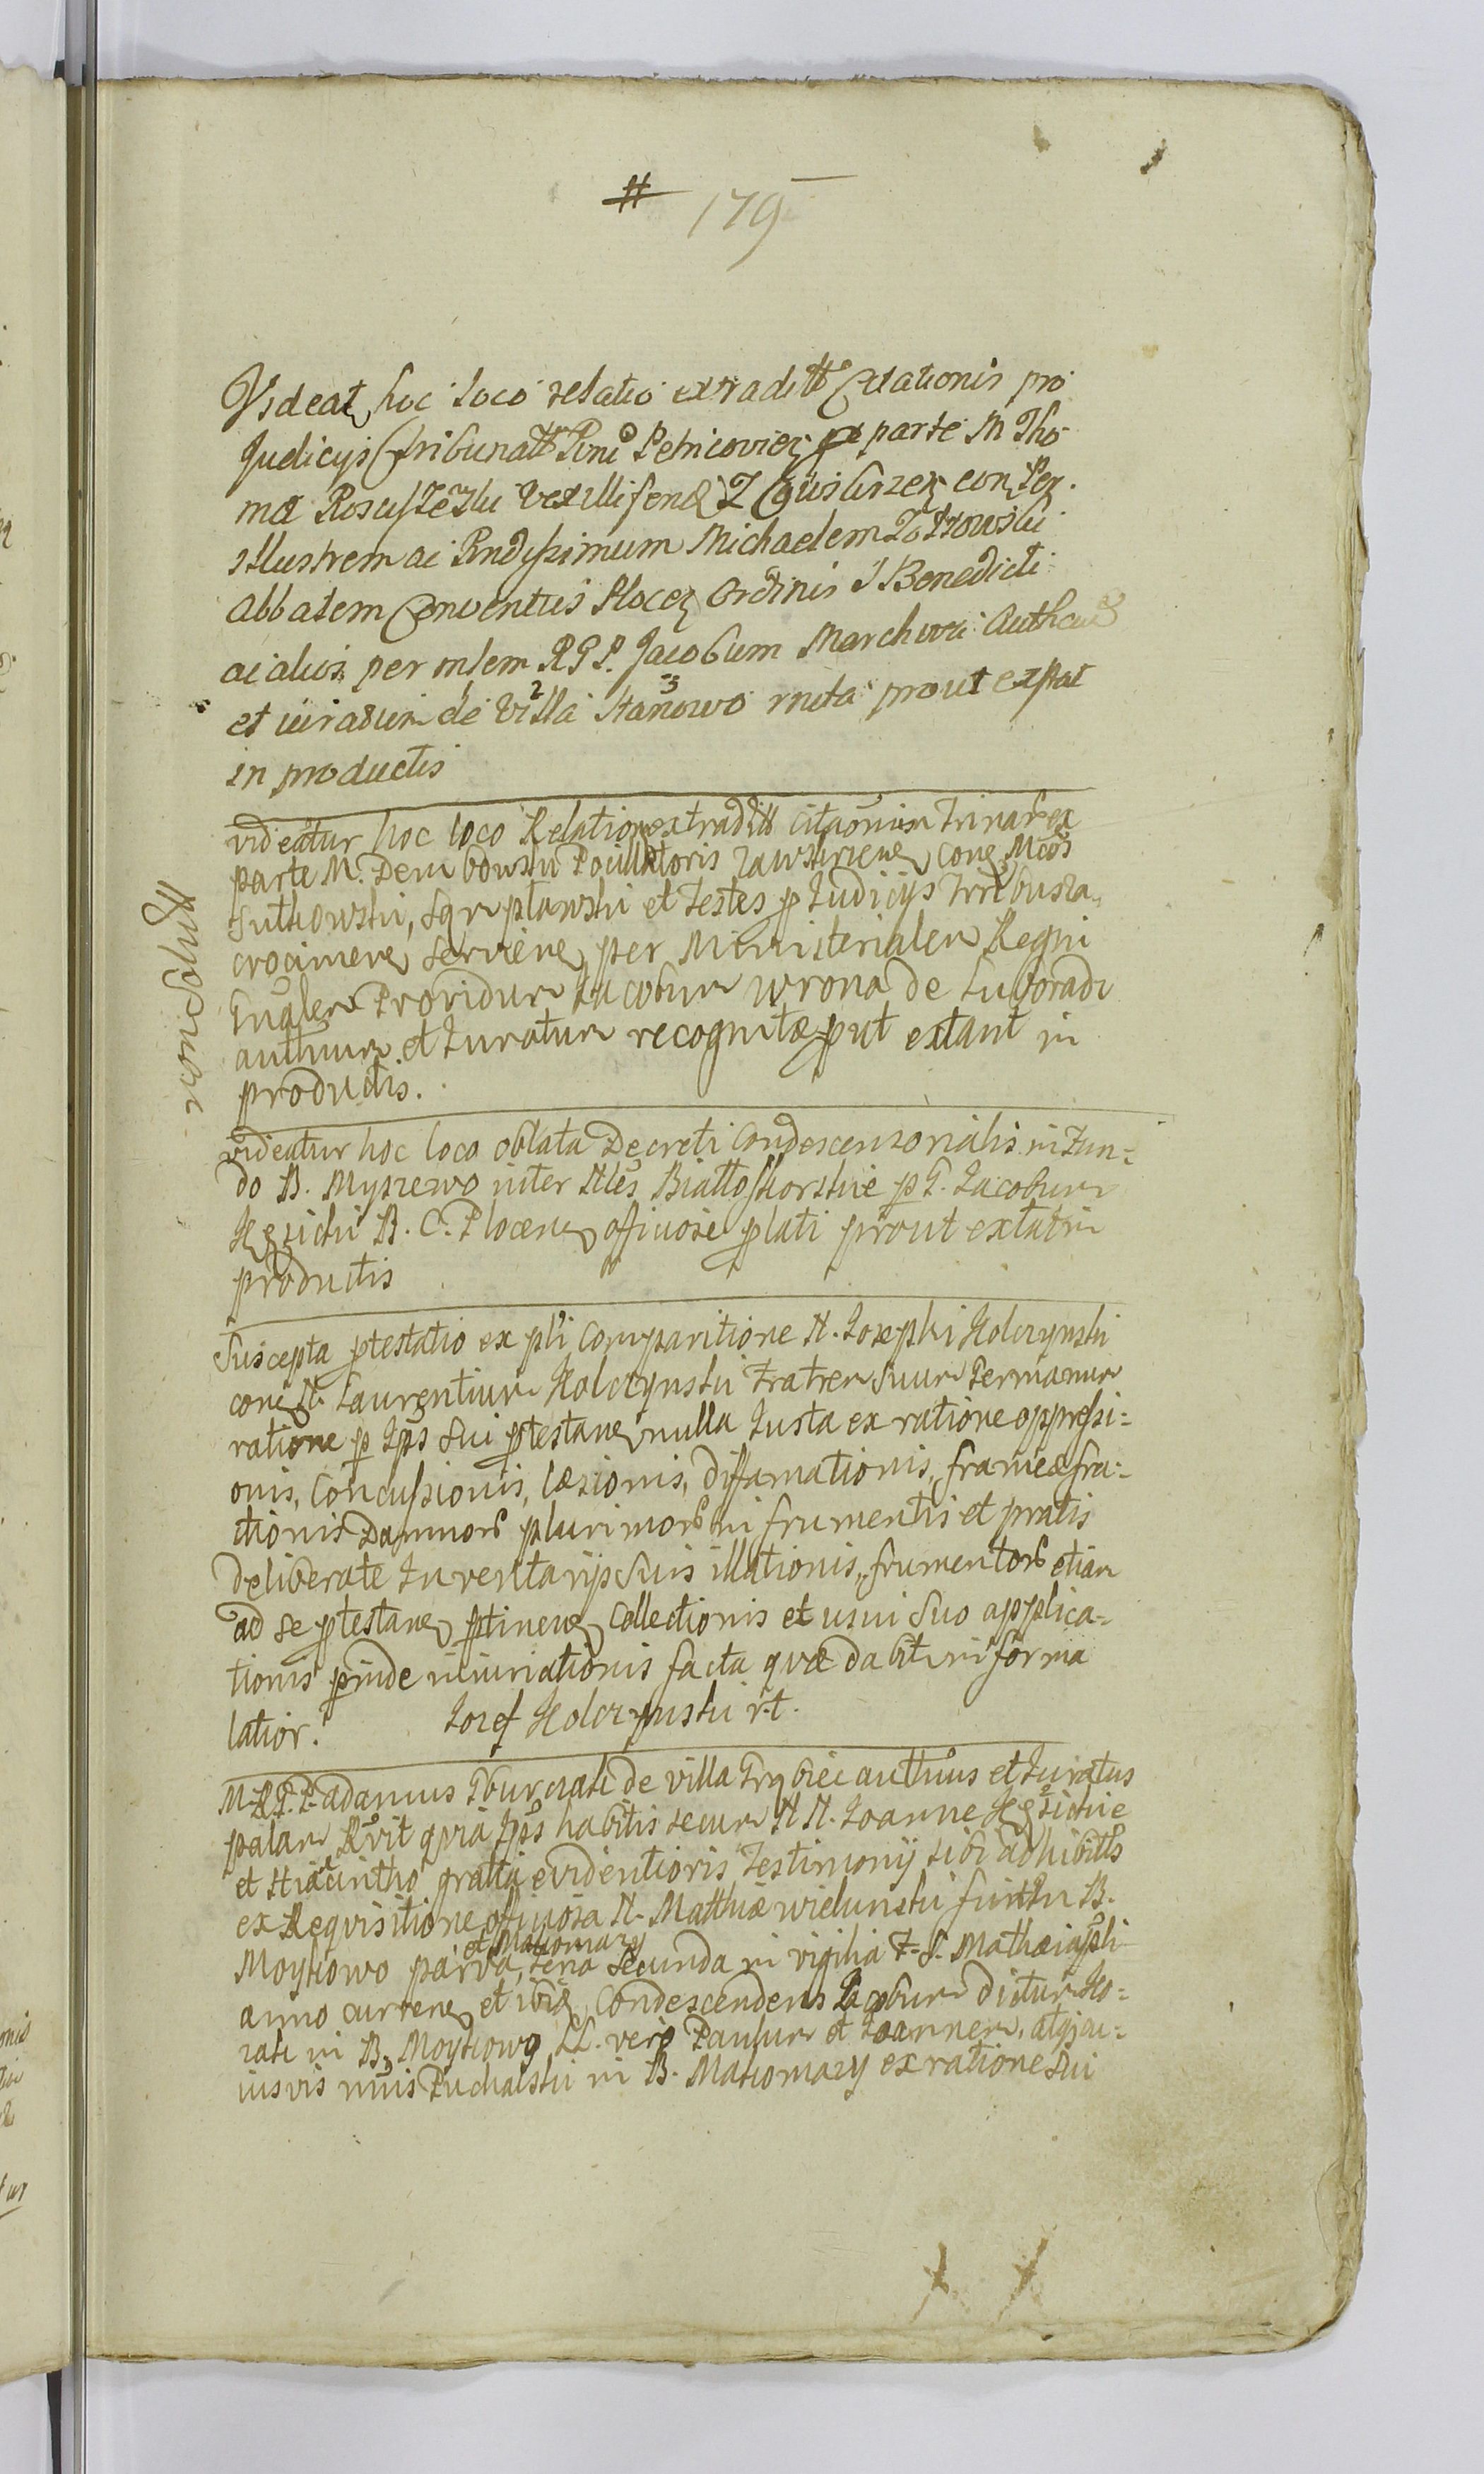 # 179
Videat hoc loco relatio extraditt Citationis pro
Judicijs Tribunatt Petricovien parte M Tho
ma Vexilliferi con
illustrem ac Rndissimum Michaelem
abbatem Conventus Plocen Ordinis S Benedicti
ac alios per mlem R G P. Jacobum Authcum
et iuratum de Villa Stanowo rnita prout exstat
in productis
videatur hoc loco Relation extraditt citaonium Trinar ex
parte M. Dembowski Pocillatoris Zawskrzene cone Mcos
Sutkowski, et Testes p Judicijs
per Ministerialem Regni
Gnalem Providum Jacobum Wrona de Luboradz
authnum et Juratum recognitæ put extant in
productis.
non solutt
videatur hoc loco oblata Decreti Condescensorialis in Fun=
do B. Myszewo inter Nles p G. Jacobum
B. C. Plocene officiose plati prout extat in
productis
Suscepta ptestatio ex pli Comparitione N. Josephi Kolczynski
cone N. Laurentium Kolczynski Fratrem Suum Germanum
ratione p Ips Sui ptestane nulla Justa ex ratione oppressi=
onis, Concussionis, læsionis, diffamationis, frameæ fra=
ctionis Damnorb plurimorb in frumentis et pratis
deliberate Inventarijs Suis illationis, frumentorb etiam
ad se ptestane ptinene Collectionis et usui Suo applica=
tionis pinde iniuriationis facta quæ dabit in forma
latior. Jozef Kolczynski rt.
M. R. G. P. Adamus de villa authnus et Juratus
palam Rvit quia Ips habitis secum N N. Joanne
et Hiacintho gratia evidentioris Testimonij sibi adhibitts
ex Requisitione officiosa N. Matthiæ Wielunski B.
Moykowo parva, et Makomazy feria secunda in vigilia F. S. Mathæi apli
anno currene et ibid Condescendens Jacobum dictum Ko=
in B. Moykowo LL. vero Paulum et Joannem, atq; cu=
iusvis nnis Puchalski in B. Makomazy ex ratione Sui